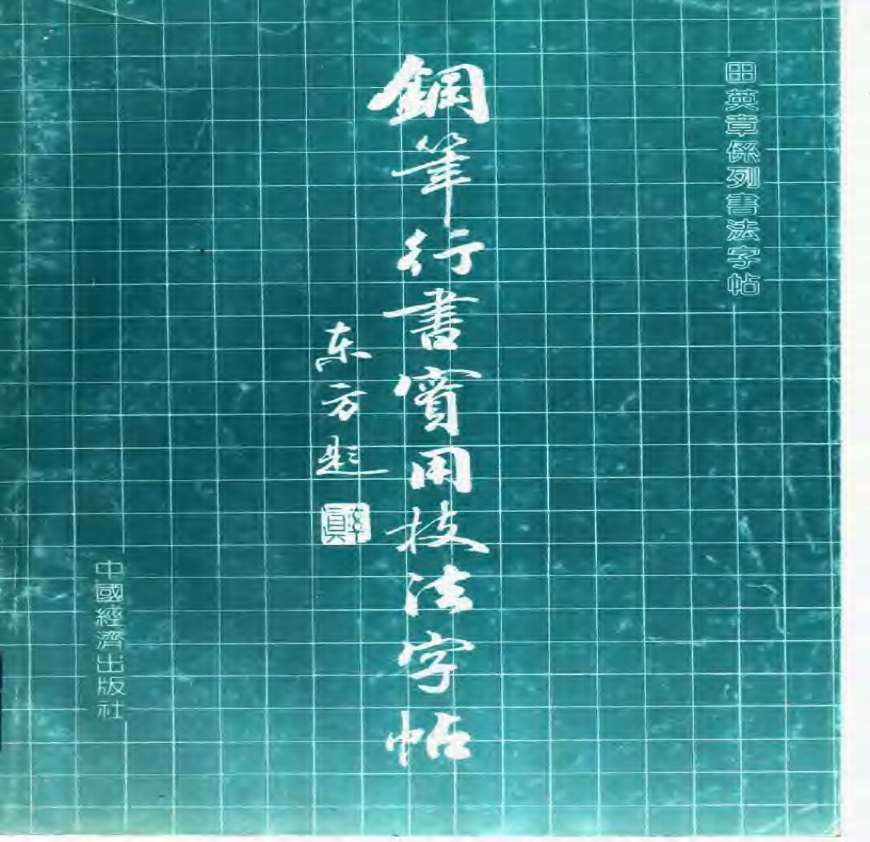 田英章係列書法字帖
鋼筆行書實用技法字帖
东方题
中國經濟出版社